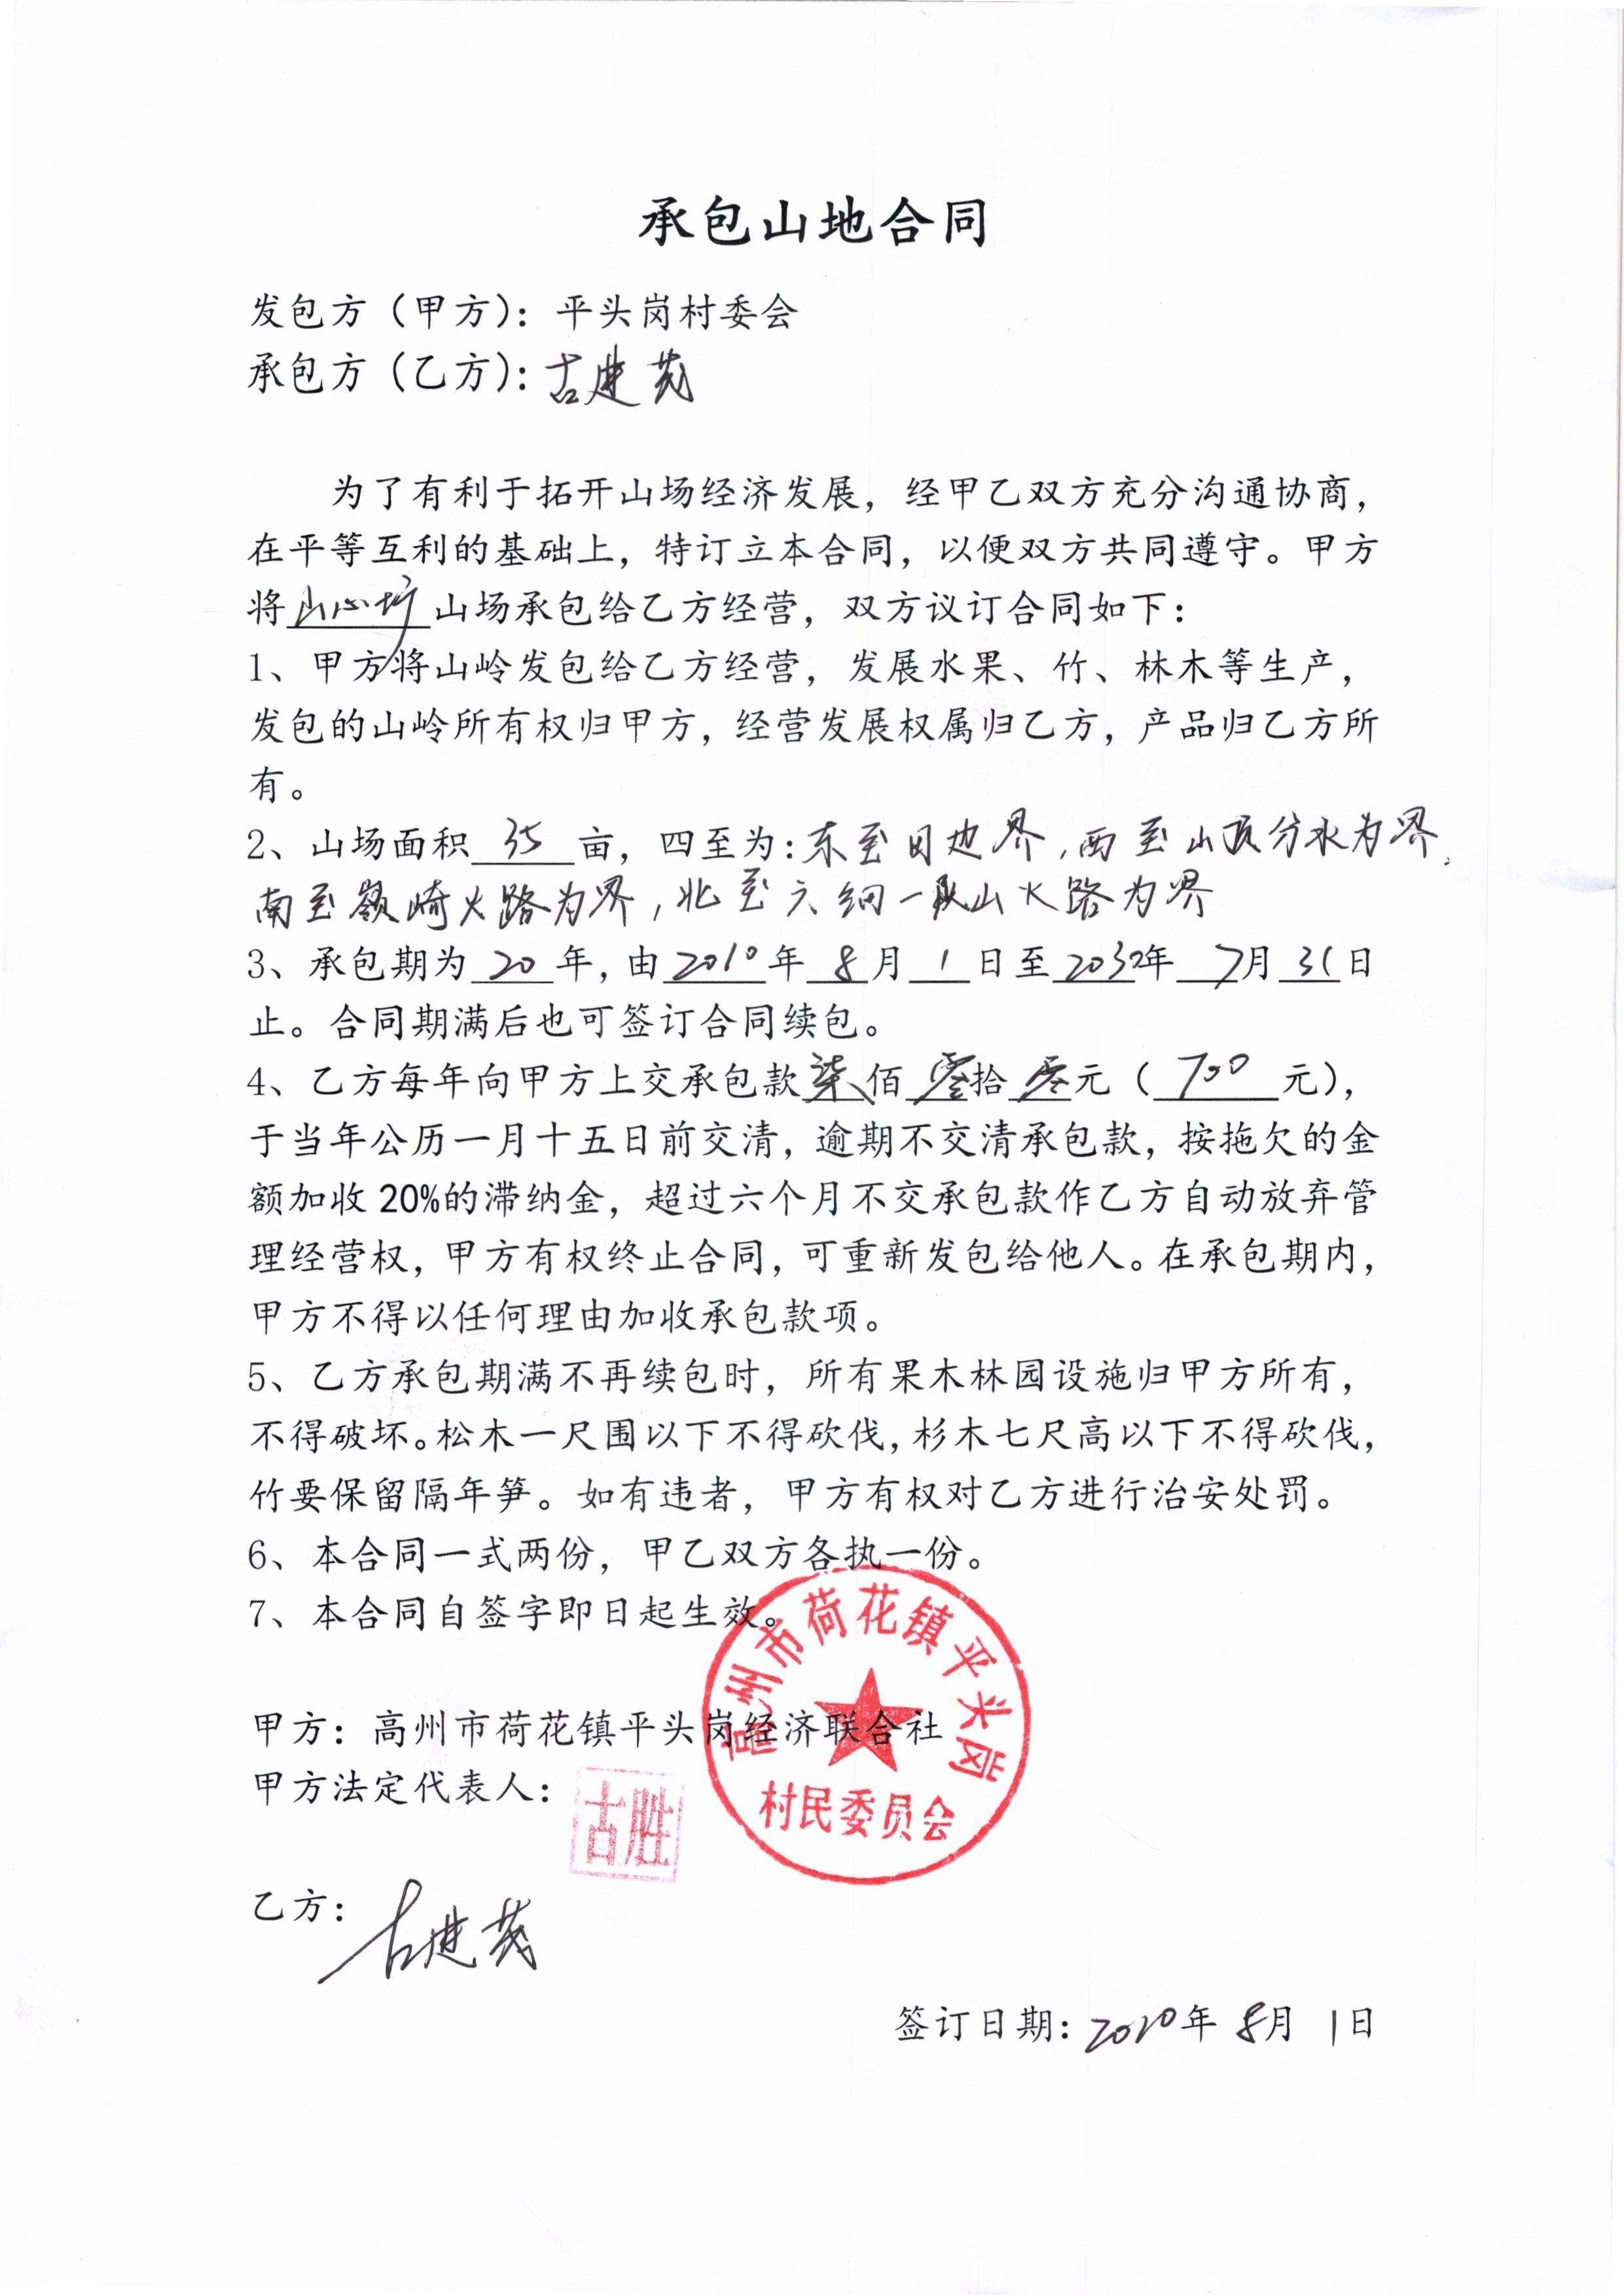 承包山地合同
发包方（甲方）：平头岗村委会
承包方（乙方）：古建茂
为了有利于拓开山场经济发展，经甲乙双方充分沟通协商，
在平等互利的基础上，特订立本合同，以便双方共同遵守。甲方
将山心圢山场承包给乙方经营，双方议订合同如下：
1、甲方将山岭发包给乙方经营，发展水果、竹、林木等生产，
发包的山岭所有权归甲方，经营发展权属归乙方，产品归乙方所
有。
2、山场面积 35 亩，四至为：东至田边界，西至山顶分水为界，
南至嶺崎火路为界，北至六细一队山火路为界
3、承包期为 20 年，由 2010 年 8 月 1 日至 2032年 7月 31 日
止。合同期满后也可签订合同续包。
4、乙方每年向甲方上交承包款柒佰零拾零元（ 700 元），
于当年公历一月十五日前交清，逾期不交清承包款，按拖欠的金
额加收 20%的滞纳金，超过六个月不交承包款作乙方自动放弃管
理经营权，甲方有权终止合同，可重新发包给他人。在承包期内，
甲方不得以任何理由加收承包款项。
5、乙方承包期满不再续包时，所有果木林园设施归甲方所有，
不得破坏。松木一尺围以下不得砍伐，杉木七尺高以下不得砍伐，
竹要保留隔年笋。如有违者，甲方有权对乙方进行治安处罚。
6、本合同一式两份，甲乙双方各执一份。
7、本合同自签字即日起生效。
高州市荷花镇平头岗
村民委员会
甲方：高州市荷花镇平头岗经济联合社
甲方法定代表人：
古胜
乙方：古建茂
签订日期：2020年 8月 1日